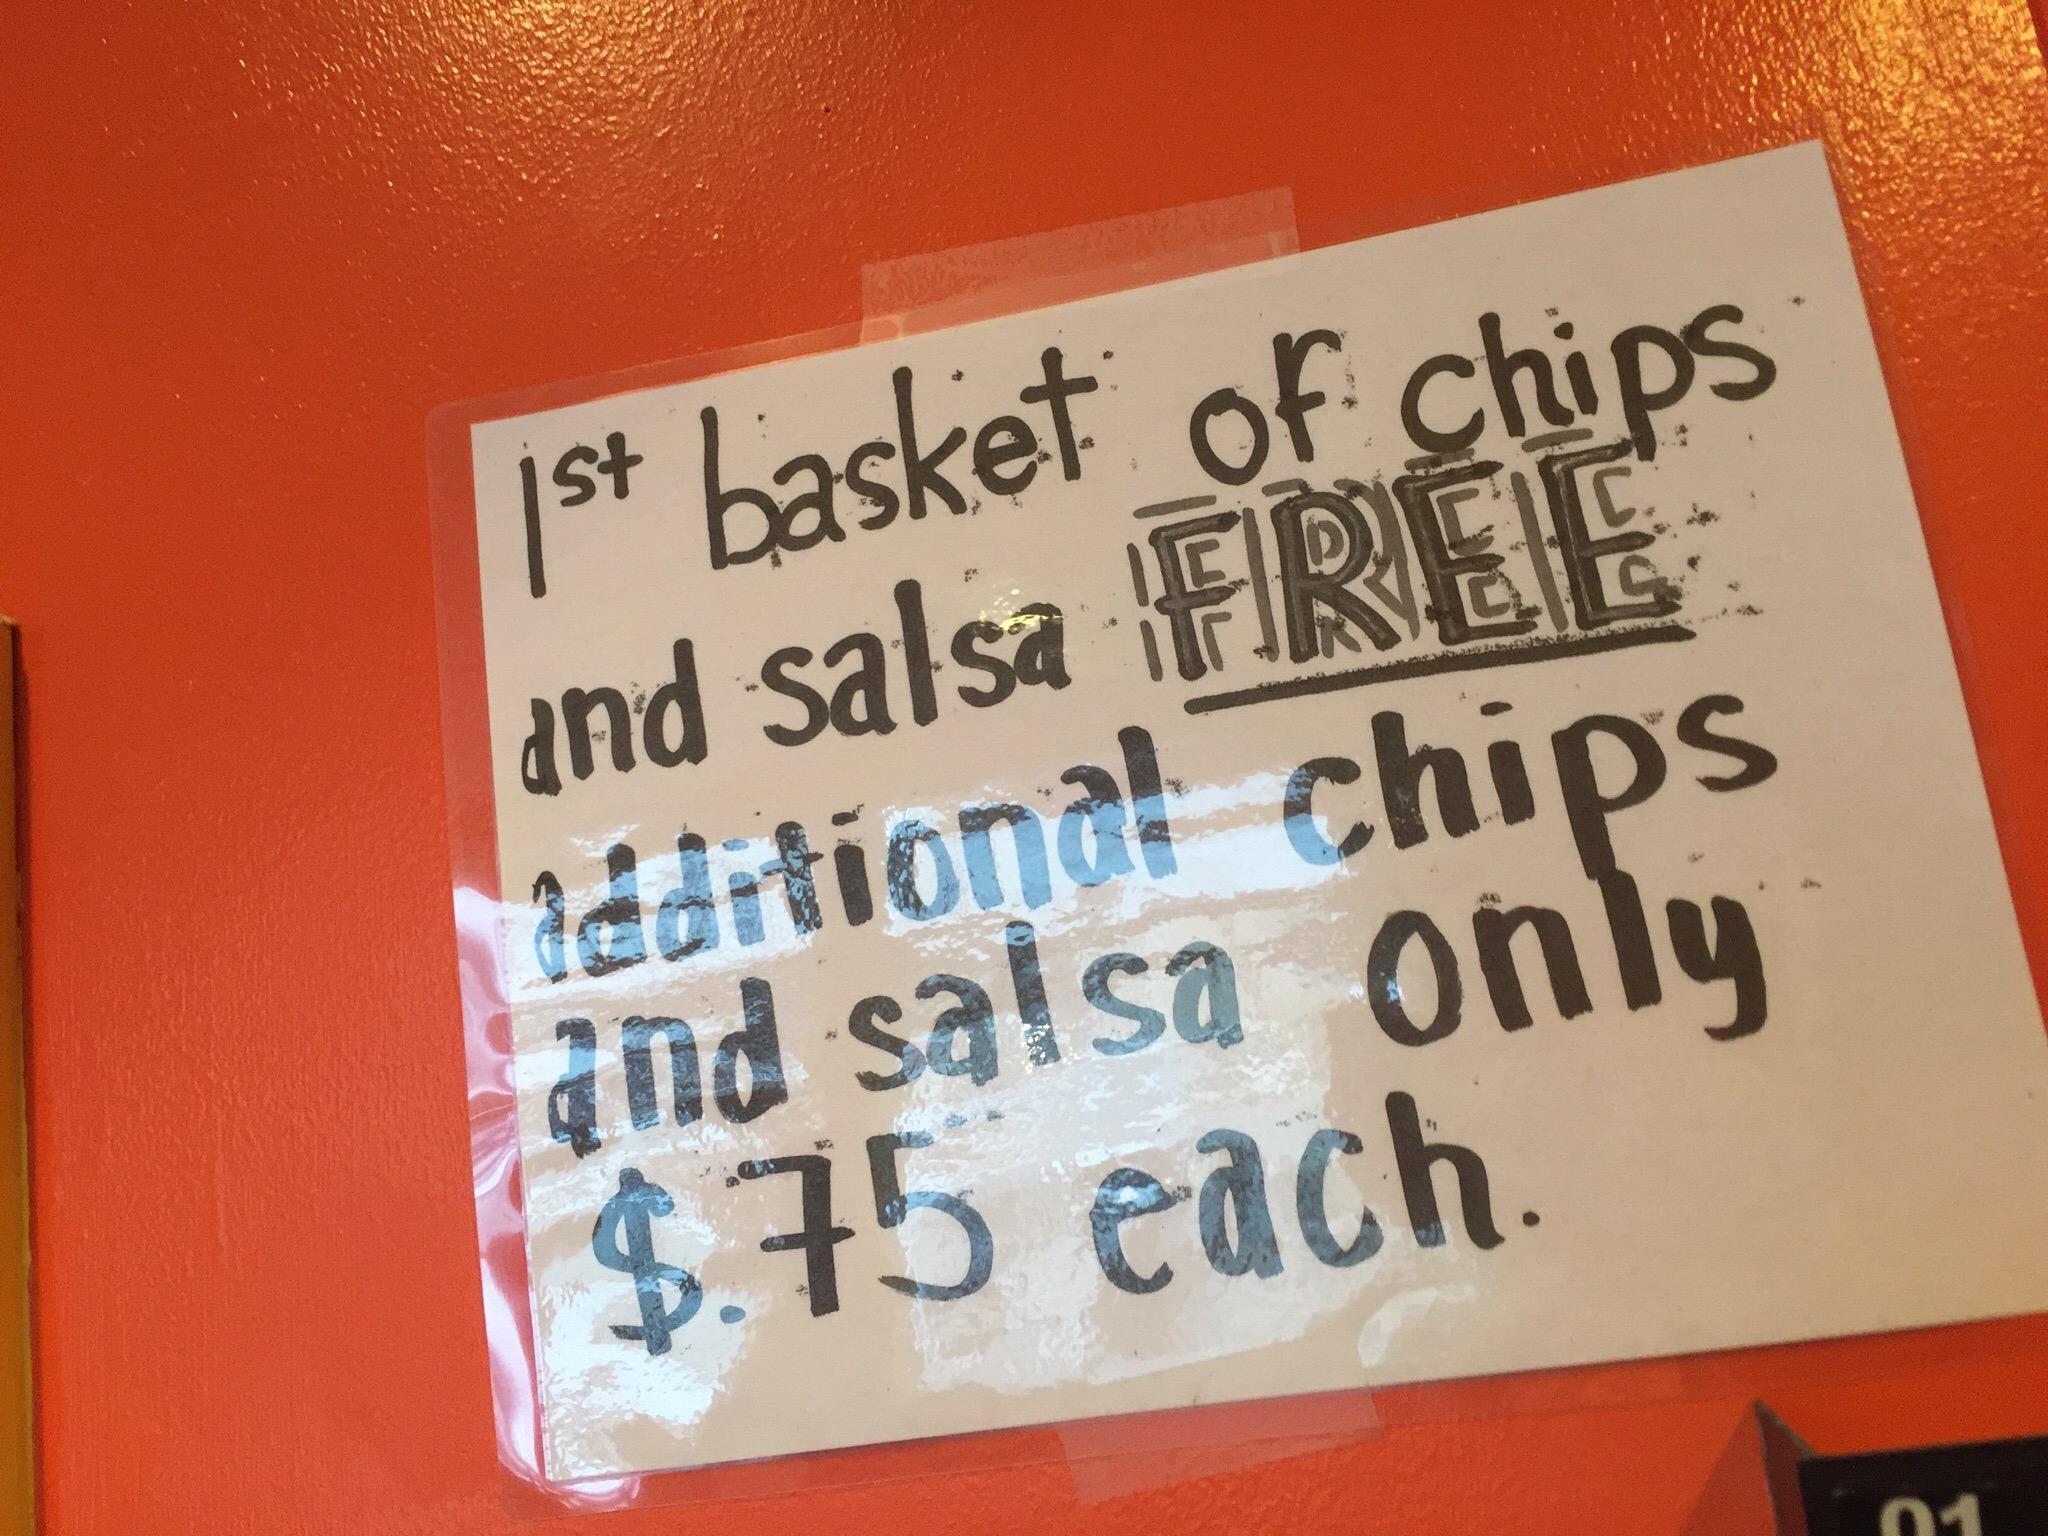 1st basket of chips
and salsa FREE
additional chips
and salsa only
$.75 each.
01